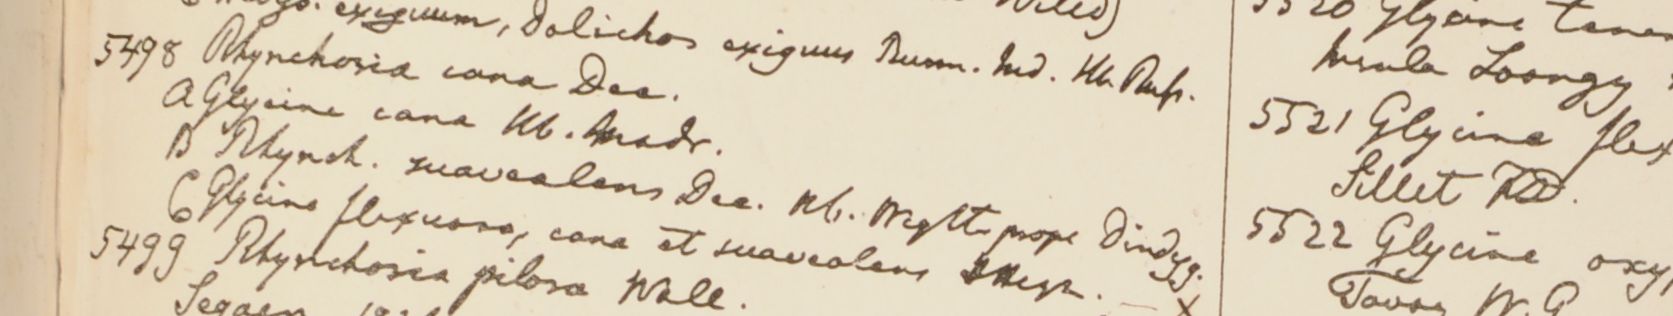 exiguum, Dolichos exiguus Rum. Ind. Hb.
5498 Rhynchosia cana Dec.
A Glycine cana Hb. Madr.
B Rhynch. suaveolens Dec. Hb. Wight prope Dindyg.
C Glycine flexuosa, cana et suaveolens
5499 Rhynchosia pilosa Wall.
Segaen
5520 Glycine
Insula Loongy
5521 Glycine flex
Sillet
5522 Glycine oxy
Tavoy W. G